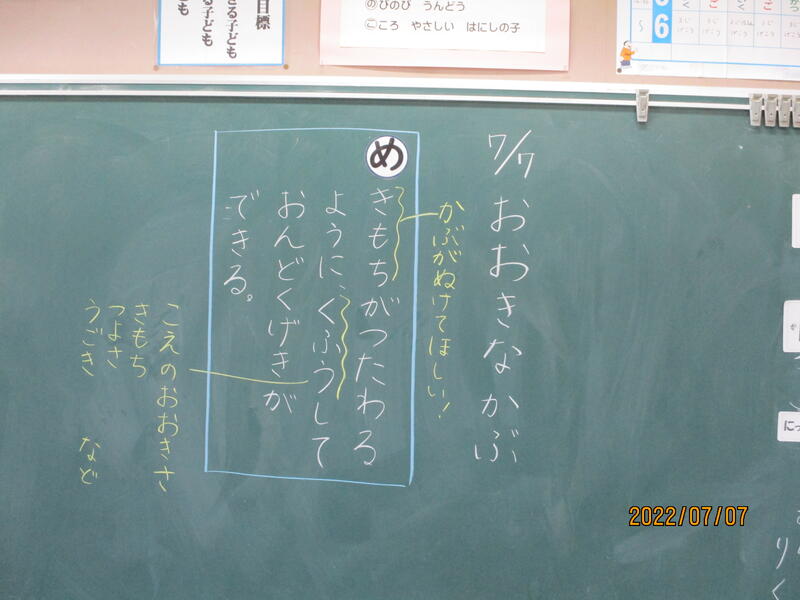 目標
きる子ども
子ども
のびのび うんどう
こころ やさしい はにしの子
6
7/7 おおきなかぶ
かぶがぬけてほしい!
め
きもちがつたわる
ように、くふうして
おんどくげきが
できる。
こえのおおきさ
きもち
つよさ
うごき など
にっ
りく
2022/07/07